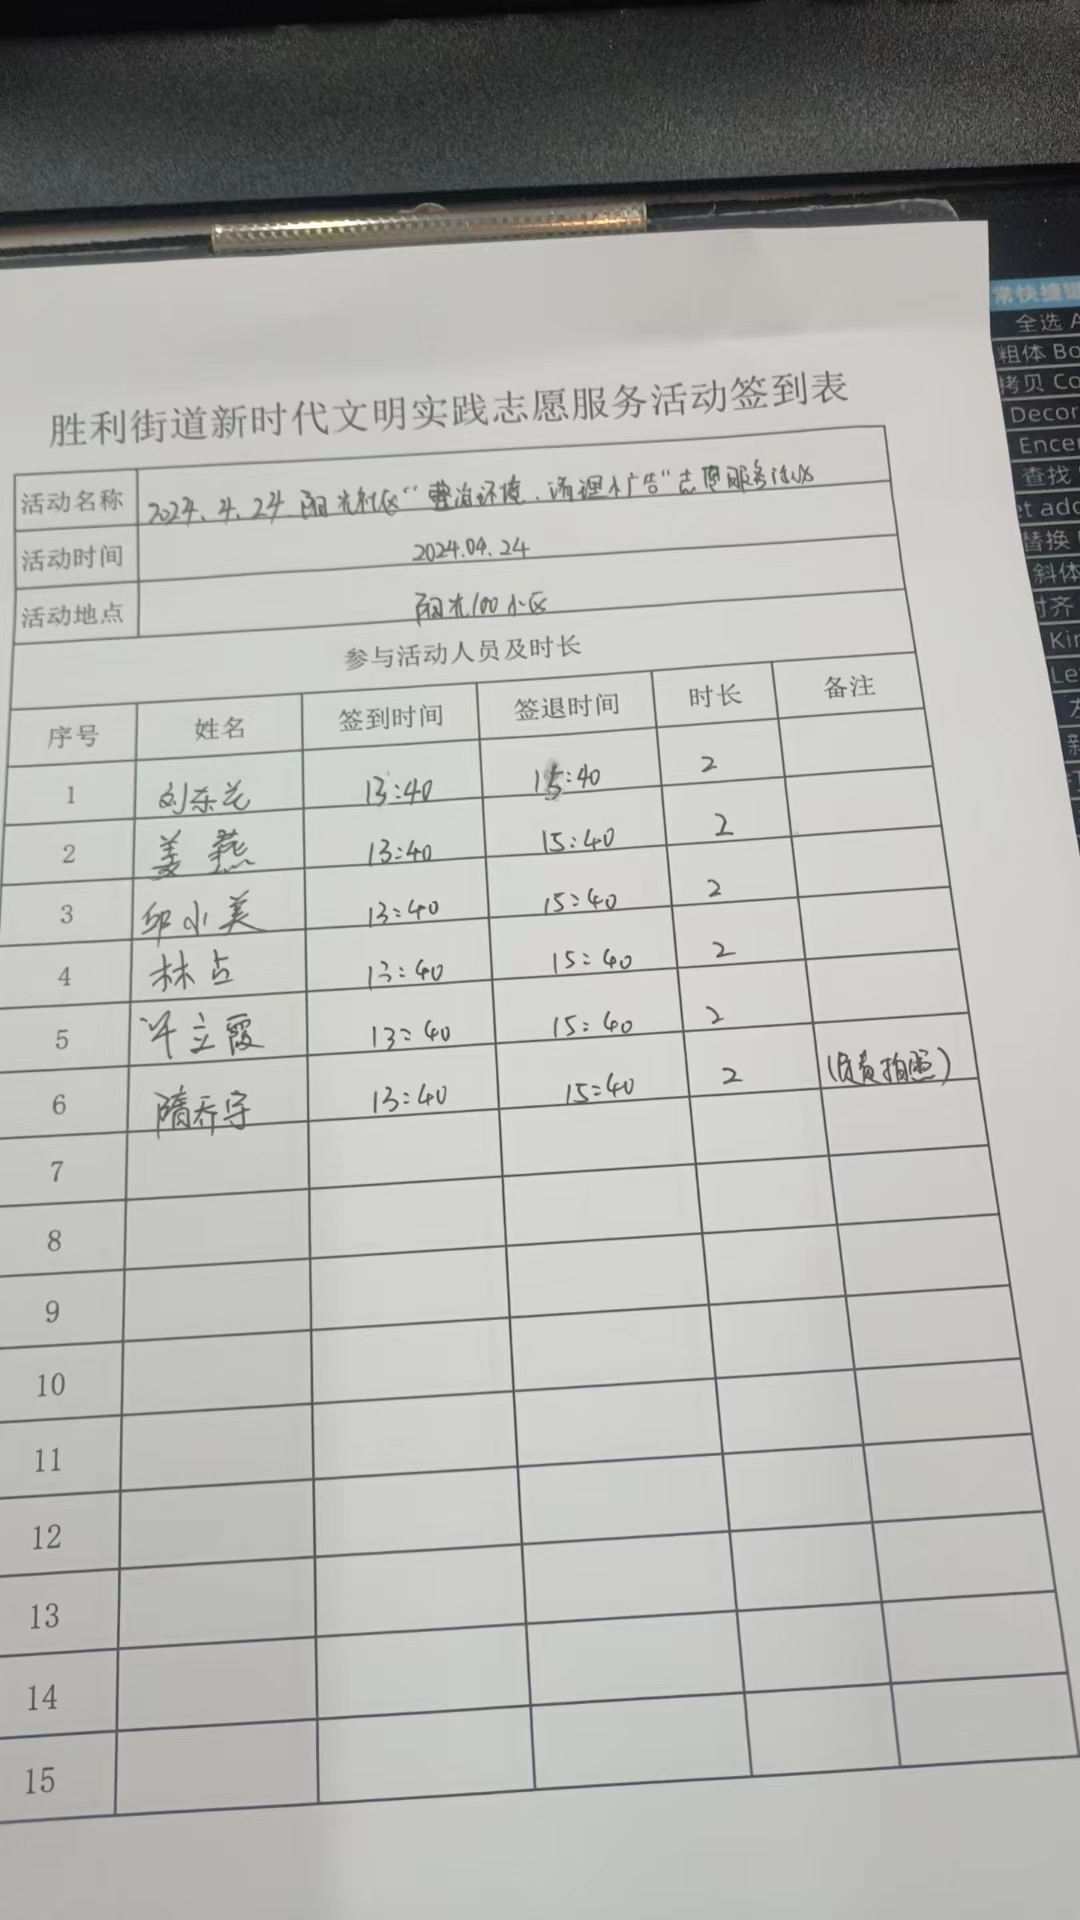 胜利街道新时代文明实践志愿服务活动签到表
活动名称 2024.4.24 阳光社区“整治环境、清理小广告”志愿服务活动
活动时间 2024.04.24
活动地点 阳光100小区
参与活动人员及时长
序号 姓名 签到时间 签退时间 时长 备注
1 13:40 15:40 2
2 姜燕 13:40 15:40 2
3 邱小美 13:40 15:40 2
4 林占 13:40 15:40 2
5 许立霞 13:40 15:40 2
6 隋乔宇 13:40 15:40 2 (负责拍照)
7
8
9
10
11
12
13
14
15
全选 A
粗体 Bo
拷贝 Co
Decor
Encer
查找
et add
替换
斜体
对齐
Kin
Le